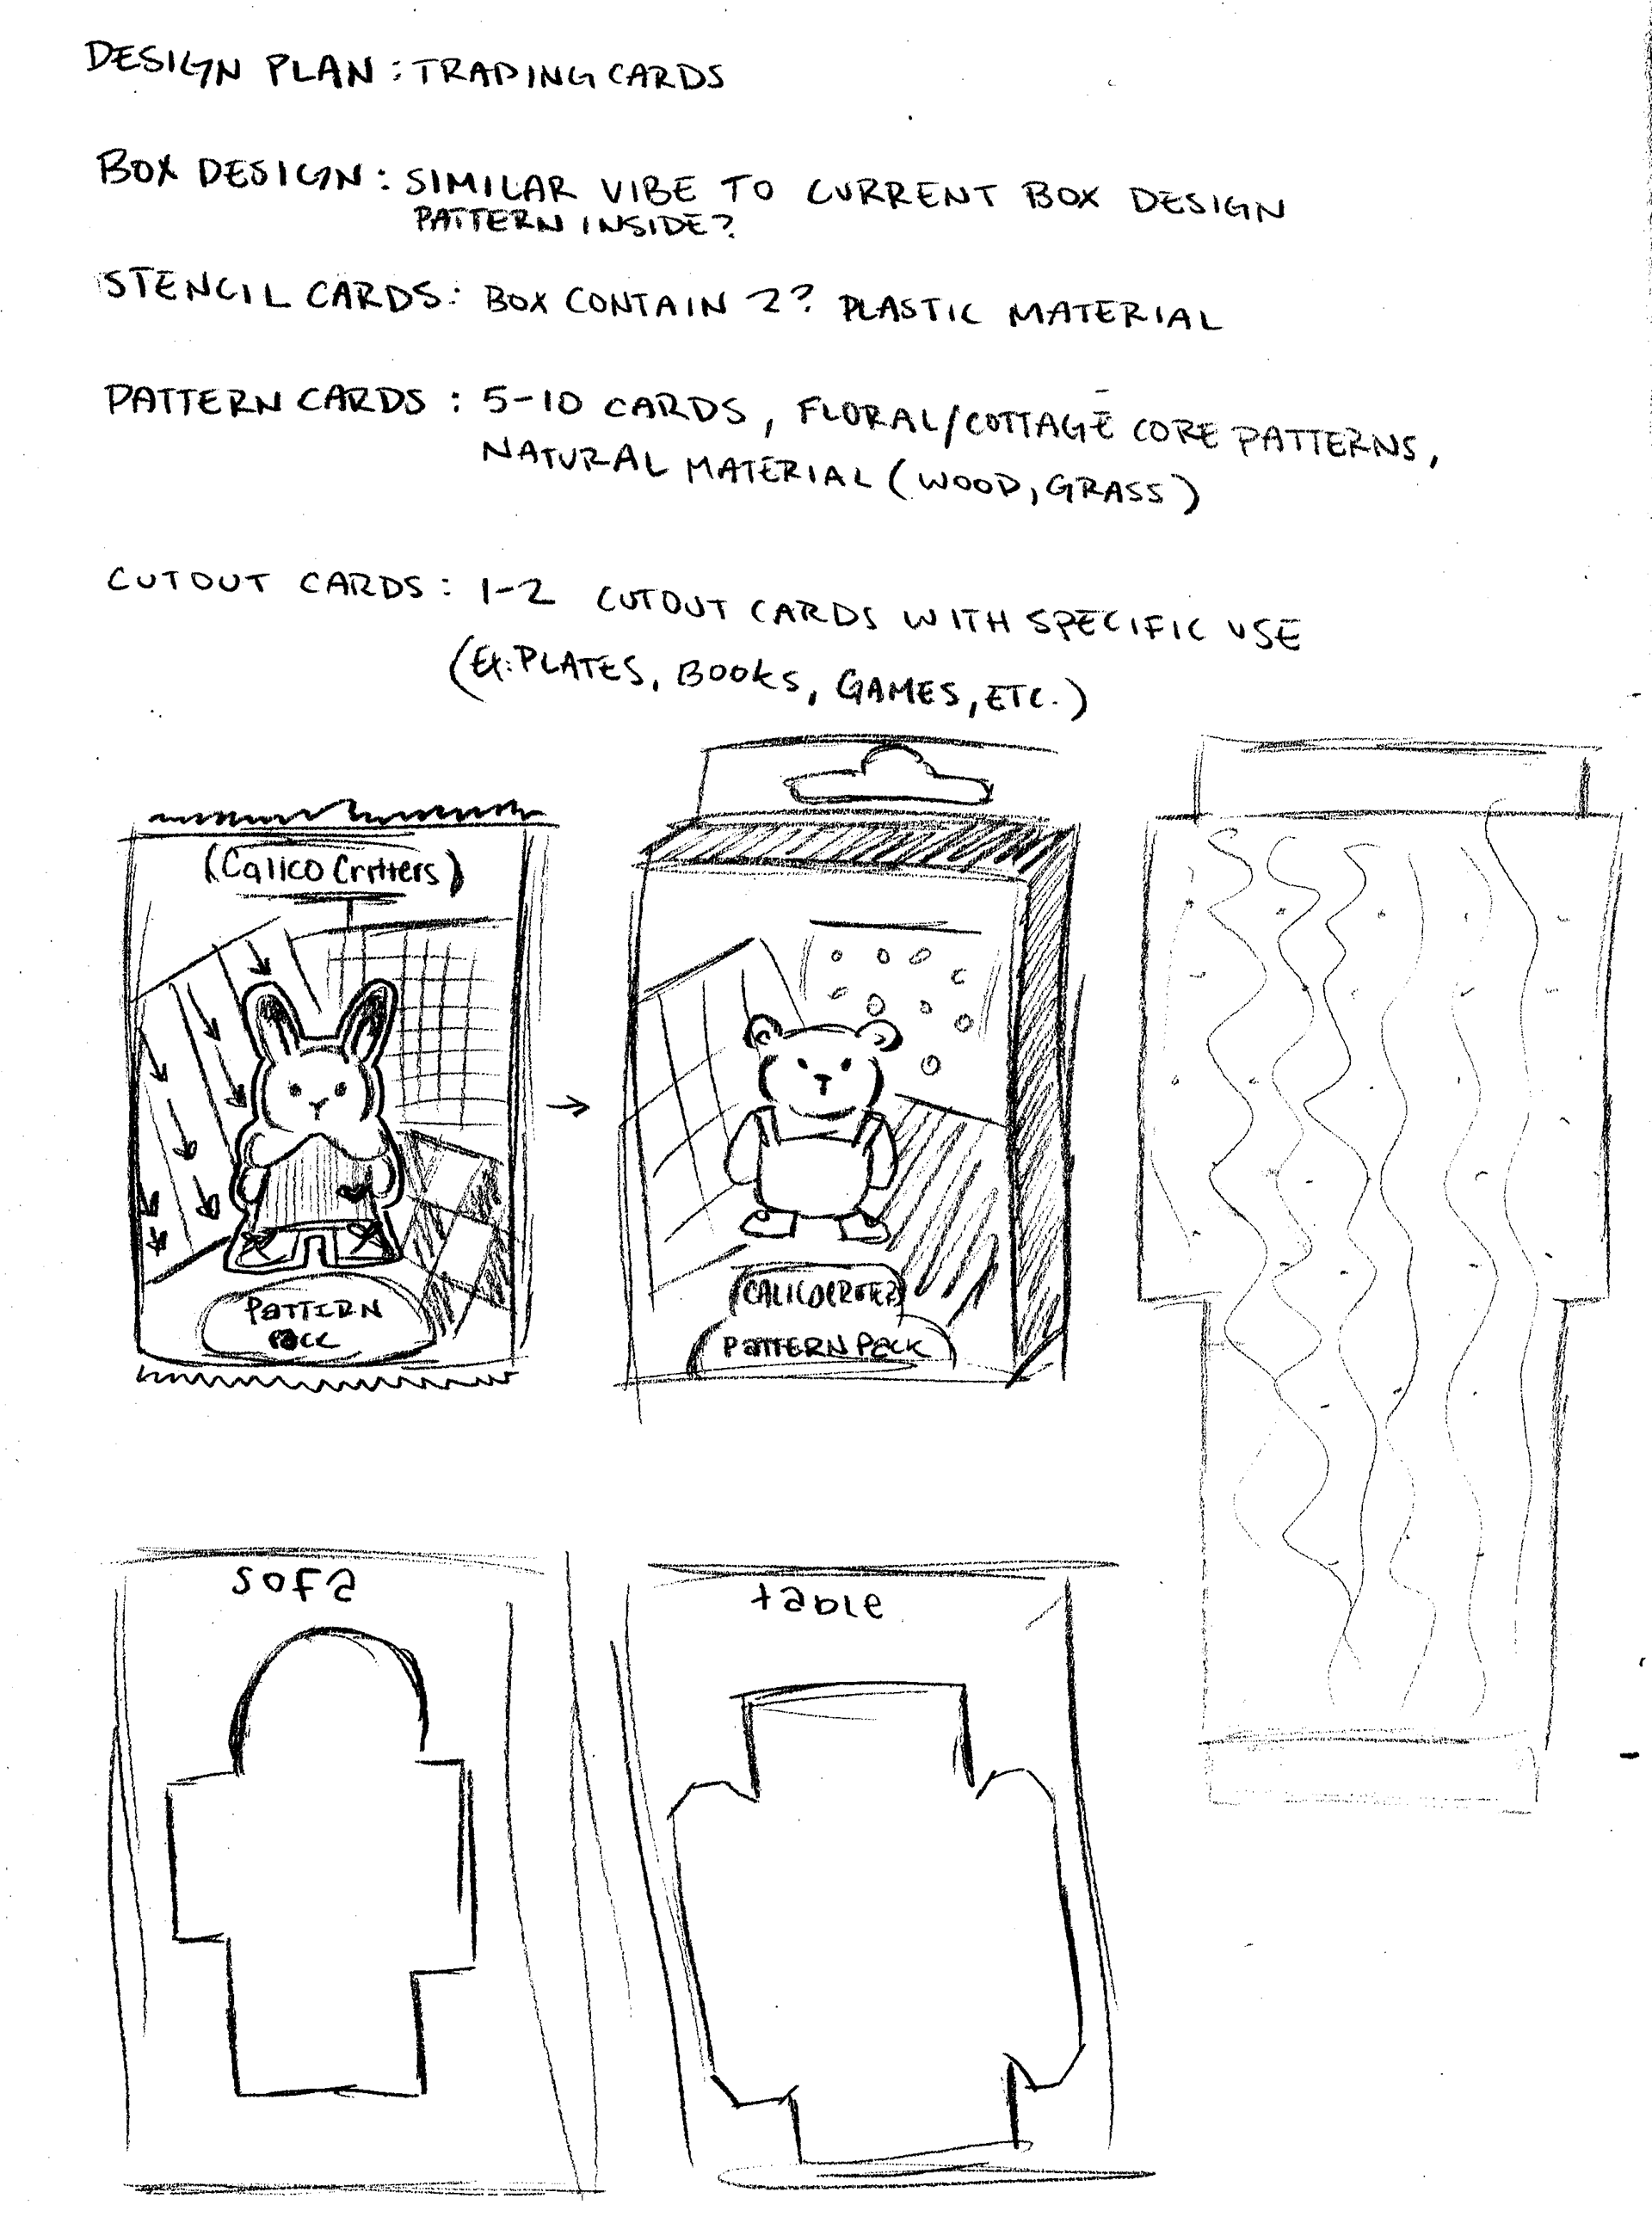 DESIGN PLAN: TRADING CARDS
BOX DESIGN: SIMILAR VIBE TO CURRENT BOX DESIGN
PATTERN INSIDE?
STENCIL CARDS: BOX CONTAIN 2? PLASTIC MATERIAL
PATTERN CARDS: 5-10 CARDS, FLORAL/COTTAGE CORE PATTERNS,
NATURAL MATERIAL (WOOD, GRASS)
CUTOUT CARDS: 1-2 CUTOUT CARDS WITH SPECIFIC USE
(EX: PLATES, BOOKS, GAMES, ETC.)
(Calico Critters)
PATTERN
PACK
PATTERN PACK
sofa
table